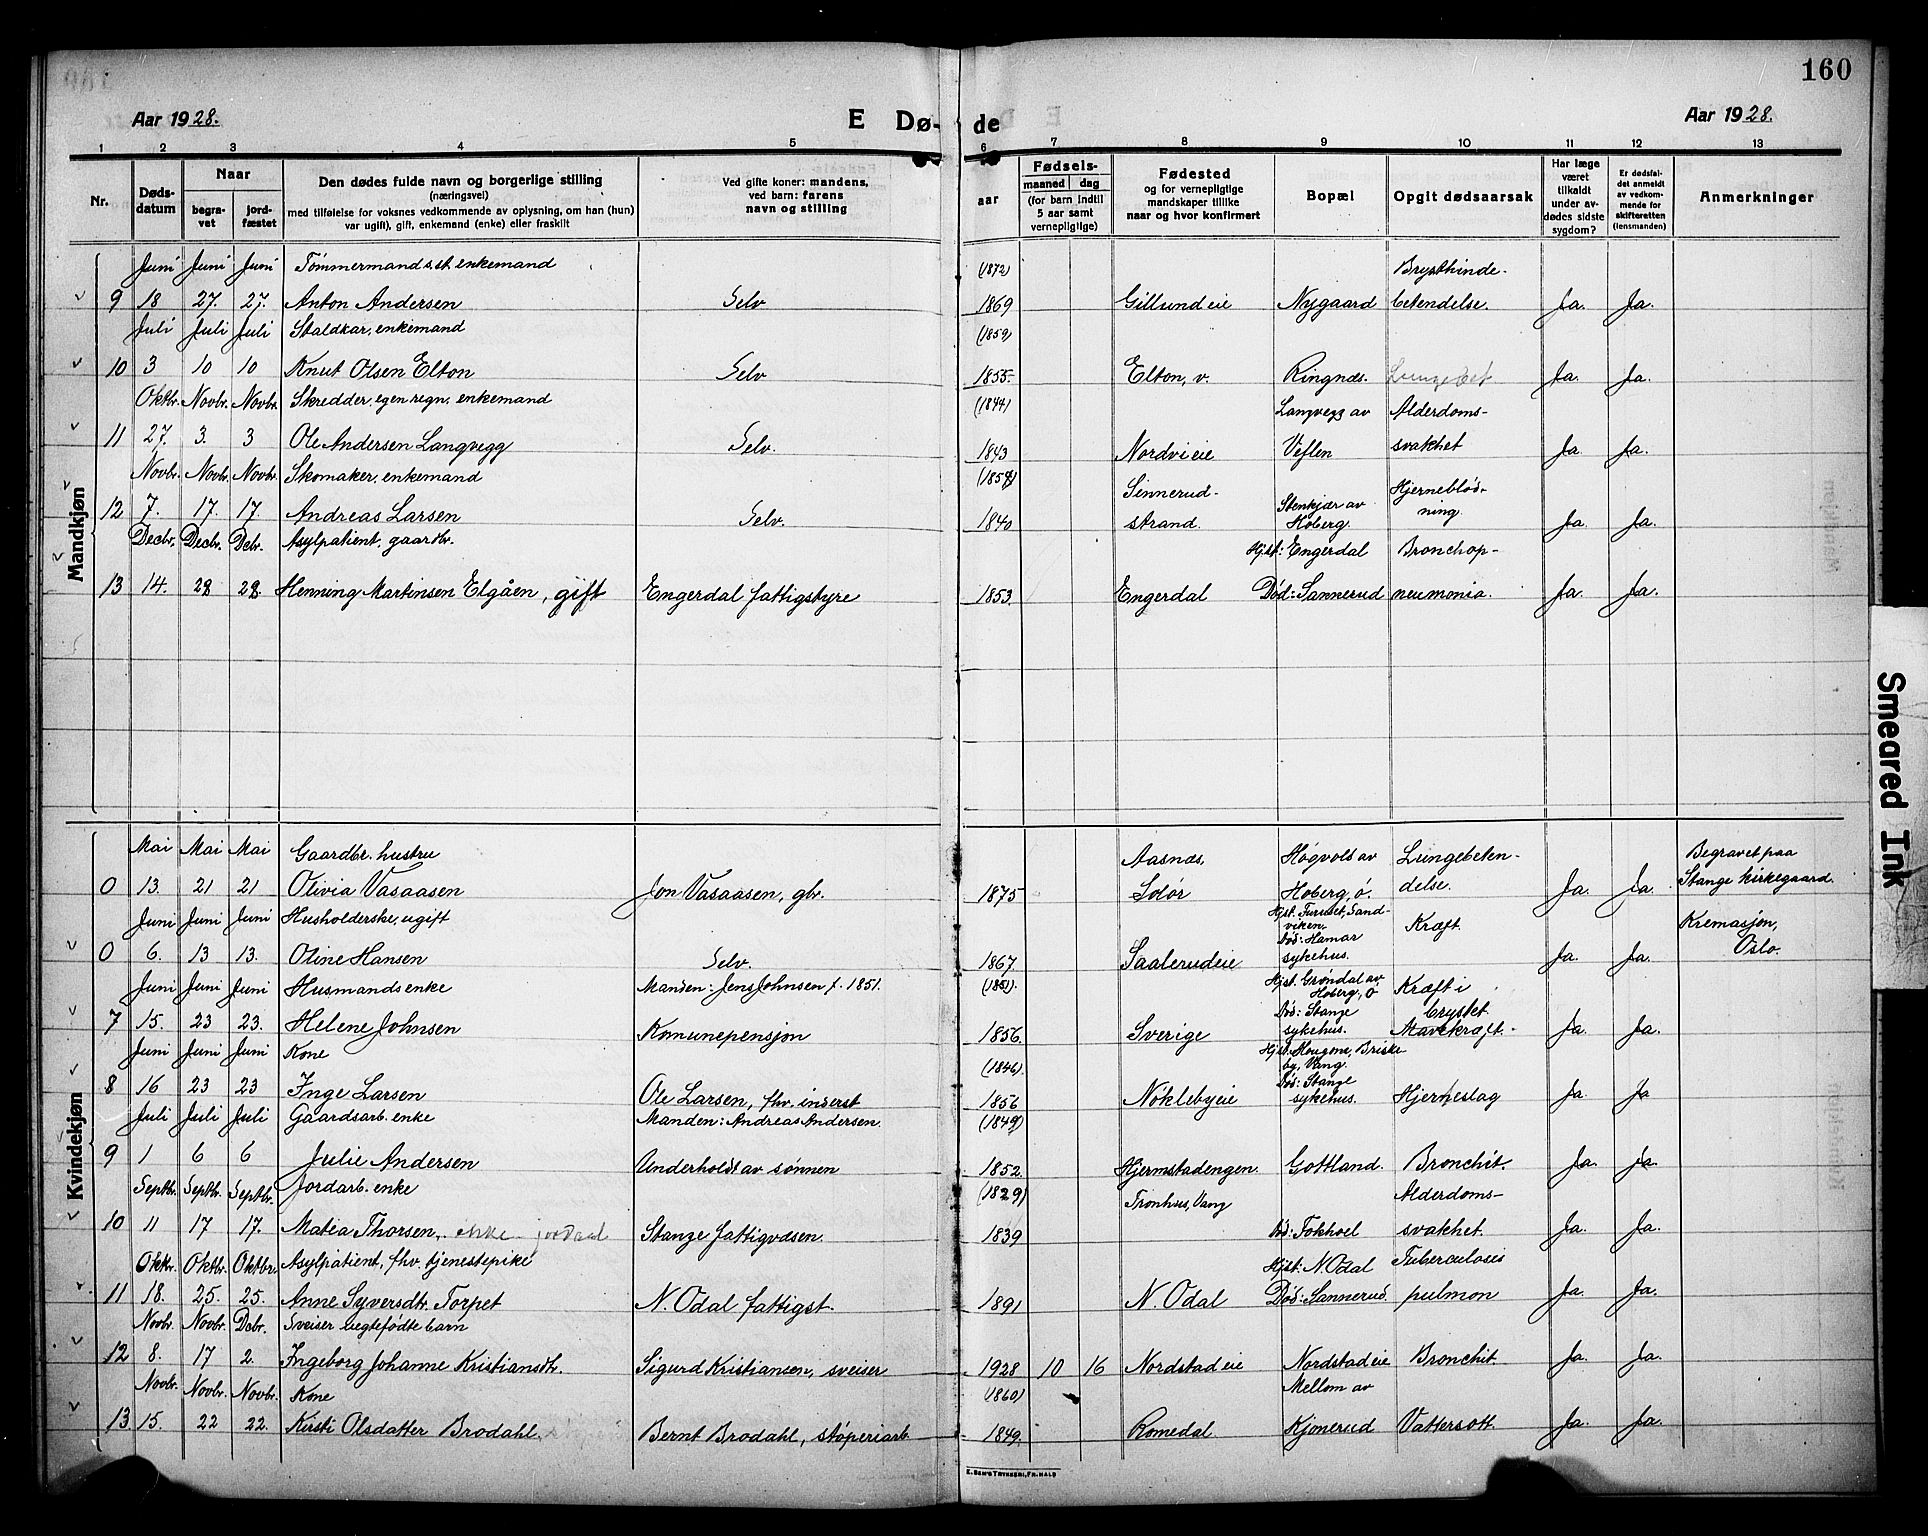 160
Aar 1928.
E Dø-
de
Aar 1928.
1 2 3 4 5 6 7 8 9 10 11 12 13
Nr.
Døds-
datum
Naar
begra-
vet
jord-
fæstet
Den dødes fulde navn og borgerlige stilling
(næringsvei)
med tilføielse for voksnes vedkommende av oplysning, om han (hun)
var ugift), gift, enkemand (enke) eller fraskilt
Ved gifte koner: mandens,
ved barn: farens
navn og stilling
aar
Fødsels-
maaned dag
(for barn indtil
5 aar samt
vernepligtige)
Fødested
og for vernepligtige
mandskaper tillike
naar og hvor konfirmert
Bopæl
Opgit dødsaarsak
Har læge
været
tilkaldt
under av-
dødes sidste
sygdom?
Er dødsfal-
det anmeldt
av vedkom-
mende for
skifteretten
(lensmanden)
Anmerkninger
Mandkjøn
Juni Juni Juni Tømmermands.st. enkemand (1872) Brysthinde-
9 18 27. 27. Anton Andersen Selv 1869 Gillundeie Nygaard betendelse. Ja. Ja.
Juli Juli Juli Staldkar, enkemand (1859)
10 3 10 10 Knut Olsen Elton Selv 1855. Elton, v. Ringnæs. Lungebet Ja. Ja.
Oktbr. Novbr. Novbr. Skredder, egen regn. enkemand (1844) Langvegg av Alderdoms-
11 27. 3. 3 Ole Andersen Langvegg Selv. 1843 Nordvieie Veflen svakhet Ja. Ja.
Novbr. Novbr. Novbr. Skomaker, enkemand Sinnerud- Stenkjær av Hjerneblød-
12 7. 17. 17. Andreas Larsen Selv. 1840 strand. Hoberg. ning. Ja. Ja.
Decbr. Decbr. Dcbr. Asylpatient, gaardbr. Hjst: Engerdal Bronchop-
13 14. 28 28. Henning Martinsen Elgåen, gift Engerdal fattigstyre 1853. Engerdal Død: Sannerud neumonia. Ja. Ja.
Kvindekjøn
Mai Mai Mai Gaardbr. hustru Aasnæs, Høgvold av Lungebeten- Begravet paa
0 13. 21 21 Olivia Vasaasen Jon Vasaasen, gbr. 1875 Solør Hoberg, ø. delse. Ja. Ja. Stange kirkegaard.
Juni Juni Juni Husholderske, ugift Hjst. Furuset, Sand-
viken. Kræft. Kremasjon,
0 6. 13 13. Oline Hansen Selv. 1867. Saalerudeie Død: Hamar
sykehus. Ja. Ja. Oslo.
Juni Juni Juni Husmands enke Manden: Jens Johnsen f. 1851. (1851). Hjst. Grøndal av
Hoberg, ø Kræft i
7 15. 23 23. Helene Johnsen Komunepensjon 1856. Sverige Død: Stange
sykehus. brystet
Mavekræft. Ja. Ja.
Juni Juni Juni Kone (1846). Hjst. Hougene, Briske
by, Vang.
8 16 23 23 Inge Larsen Ole Larsen, fhv. inderst 1856 Nøklebyeie Død: Stange
sykehus. Hjerneslag Ja. Ja
Juli Juli Juli Gaardsarb. enke Manden: Andreas Andersen. (1849)
9 1 6 6 Julie Andersen Underholdt av sønnen 1852. Hjermstadengen. Gottland. Bronchit. Ja. Ja.
Septbr. Septbr. Septbr. Jordarb. enke (1829) Tronhus, Vang Alderdoms-
10 11 17 17. Matea Thorsen, enke Stange fattigvæsen. 1839 Død: Fokhoel svakhet. Ja. Ja.
Oktbr. Oktbr. Oktbr. Asylpatient, fhv. tjenestepike Hjst: N. Odal Tuberculosis
11 18. 25. 25. Anne Syversdtr. Torpet N. Odal fattigst. 1891 N. Odal Død: Sannerud. pulmon Ja. Ja.
Novbr. Novbr. Dcbr. Sveiser ægtefødte barn
12 8. 17 2. Ingeborg Johanne Kristiansdtr. Sigurd Kristiansen, sveiser 1928 10 16 Nordstadeie Nordstadeie Bronchit. Ja. Ja.
Novbr. Novbr. Novbr. Kone (1860) Mellom av
13 15. 22 22. Kirsti Olsdatter Brodahl. Bernt Brodahl, støperiarb 1849. Romedal Kjonerud Vattersott. Ja. Ja.
E. SEM'S TRYKKERI, FR.HALD
Smeared Ink